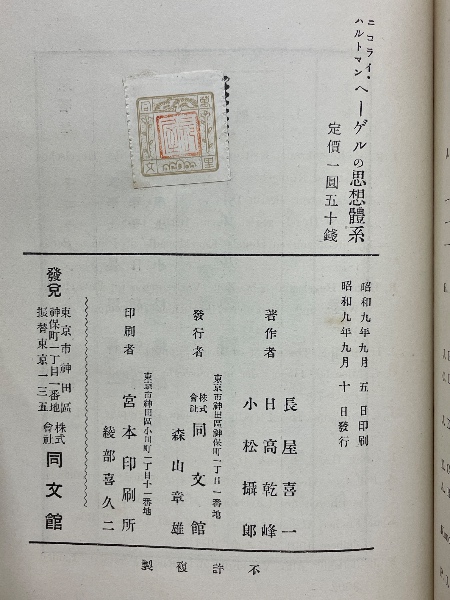 ニコライ・
ハルトマン
ヘーゲルの思想體系
定價一圓五十錢
昭和九年九月五日印刷
昭和九年九月十日發行
著作者
長屋喜一
日高乾峰
小松攝郎
東京市神田區神保町一丁目一番地
發行者
株式
會社
同文館
森山章雄
東京市神田區小川町一丁目十一番地
印刷者
宮本印刷所
綾部喜久二
發兌
東京市神田區
神保町一丁目一番地
振替東京一三五
株式
會社
同文館
不許複製